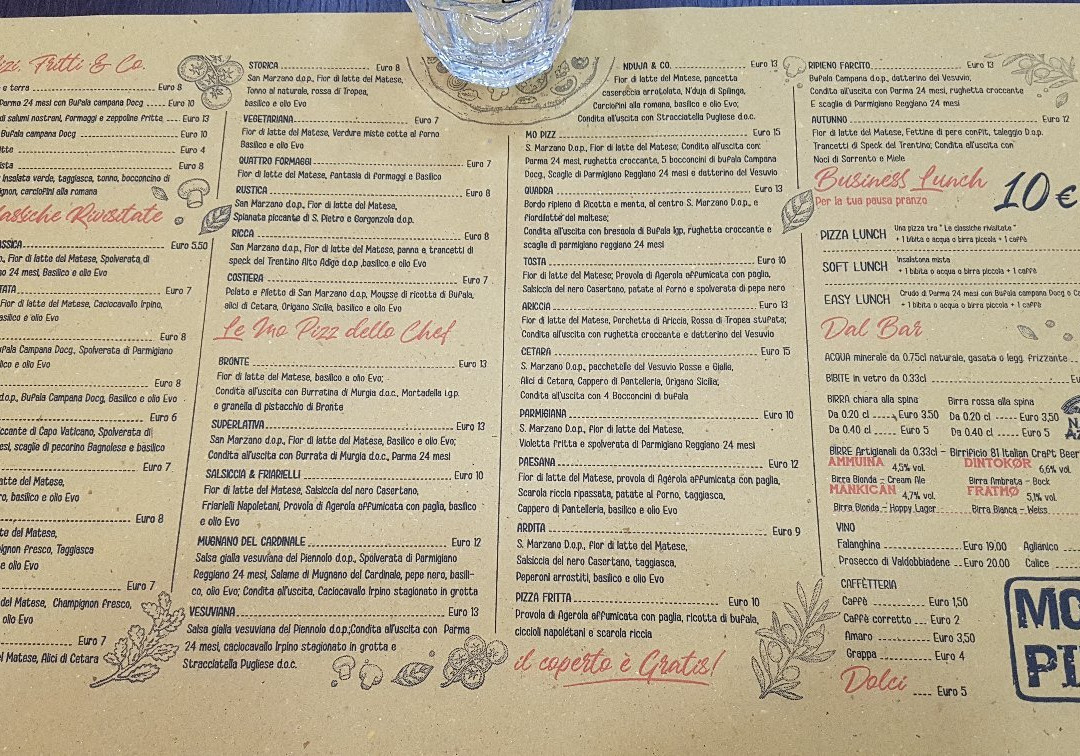 izi, Fritti & Co.
e terra Euro 8
Parma 24 mesi con Bufala campana Docg Euro 10
di salumi nostrani, formaggi e zeppoline fritte Euro 13
Bufala campana Docg Euro 10
itte Euro 4
ista Euro 8
Insalata verde, taggiasca, tonno, bocconcino di
ignon, carciofini alla romana
lassiche Rivisitate
ASSICA Euro 5.50
., Fior di latte del Matese, Spolverata di
no 24 mesi, Basilico e olio Evo
TATA Euro 7
Fior di latte del Matese, Caciocavallo Irpino,
asilico e olio Evo
Euro 8
ufala Campana Docg., Spolverata di Parmigiano
lico e olio Evo
Euro 8
d.o.p., Bufala Campana Docg, Basilico e olio Evo
Euro 6
iccante di Capo Vaticano, Spolverata di
esi, scaglie di pecorino Bagnolese e basilico
Euro 7
latte del Matese,
o, basilico e olio Evo
Euro 8
te del Matese,
pignon fresco, Taggiasca
e olio Evo
Euro 7
del Matese, Champignon fresco,
olio Evo
Euro 7
el Matese, Alici di Cetara
STORICA Euro 8
San Marzano d.o.p., Fior di latte del Matese,
Tonno al naturale, rossa di Tropea,
basilico e olio Evo
VEGETARIANA Euro 7
Fior di latte del Matese, Verdure miste cotte al forno
Basilico e olio Evo
QUATTRO FORMAGGI Euro 7
Fior di latte del Matese, fantasia di formaggi e Basilico
RUSTICA Euro 8
San Marzano d.o.p., Fior di latte del Matese,
Spianata piccante di S. Pietro e Gorgonzola d.o.p.
RICCA Euro 8
San Marzano d.o.p., Fior di latte del Matese, panna e trancetti di
speck del Trentino Alto Adige d.o.p ,basilico e olio Evo
COSTIERA Euro 7
Pelato e filetto di San Marzano d.o.p, Mousse di ricotta di Bufala,
alici di Cetara, Origano Sicilia, basilico e olio Evo
Le Mo Pizz dello Chef
BRONTE Euro 13
Fior di latte del Matese, basilico e olio Evo;
Condita all'uscita con Burratina di Murgia d.o.c., Mortadella i.g.p.
e granella di pistacchio di Bronte
SUPERLATIVA Euro 13
San Marzano D.o.p., Fior di latte del Matese, Basilico e olio Evo;
Condita all'uscita con Burrata di Murgia d.o.c., Parma 24 mesi
SALSICCIA & FRIARIELLI Euro 10
Fior di latte del Matese, Salsiccia del nero Casertano,
Friarielli Napoletani, Provola di Agerola affumicata con paglia, basilico
e olio Evo
MUGNANO DEL CARDINALE Euro 12
Salsa gialla vesuviana del Piennolo d.o.p., Spolverata di Parmigiano
Reggiano 24 mesi, Salame di Mugnano del Cardinale, pepe nero, basili-
co, olio Evo; Condita all'uscita, Caciocavallo Irpino stagionato in grotta
VESUVIANA Euro 13
Salsa gialla vesuviana del Piennolo d.o.p.;Condita all'uscita con Parma
24 mesi, caciocavallo Irpino stagionato in grotta e
Stracciatella Pugliese d.o.c.
NDUJA & CO. Euro 13
Fior di latte del Matese, pancetta
casereccia arrotolata, N'duja di Spilinga,
Carciofini alla romana, basilico e olio Evo;
Condita all'uscita con Stracciatella Pugliese d.o.c.
MO PIZZ Euro 15
S. Marzano D.o.p., Fior di latte del Matese; Condita all'uscita con:
Parma 24 mesi, rughetta croccante, 5 bocconcini di bufala Campana
Docg., Scaglie di Parmigiano Reggiano 24 mesi e datterino del Vesuvio
QUADRA Euro 13
Bordo ripieno di Ricotta e menta, al centro S. Marzano D.o.p., e
fiordilatte del maltese;
Condita all'uscita con bresaola di Bufala Igp, rughetta croccante e
scaglie di parmigiano reggiano 24 mesi
TOSTA Euro 10
Fior di latte del Matese; Provola di Agerola affumicata con paglia,
Salsiccia del nero Casertano, patate al forno e spolverata di pepe nero
ARICCIA Euro 13
Fior di latte del Matese, Porchetta di Ariccia, Rossa di Tropea stufata;
Condita all'uscita con rughetta croccante e datterino del Vesuvio
CETARA Euro 15
S. Marzano D.o.p., pacchetelle del Vesuvio Rosse e Gialle,
Alici di Cetara, Cappero di Pantelleria, Origano Sicilia;
Condita all'uscita con 4 Bocconcini di bufala
PARMIGIANA Euro 10
S. Marzano D.o.p., Fior di latte del Matese,
Violetta fritta e spolverata di Parmigiano Reggiano 24 mesi
PAESANA Euro 12
Fior di latte del Matese, provola di Agerola affumicata con paglia,
Scarola riccia ripassata, patate al Forno, taggiasca,
Cappero di Pantelleria, basilico e olio Evo
ARDITA Euro 9
S. Marzano D.o.p., fior di latte del Matese,
Salsiccia del nero Casertano, taggiasca,
Peperoni arrostiti, basilico e olio Evo
PIZZA FRITTA Euro 10
Provola di Agerola affumicata con paglia, ricotta di bufala,
ciccioli napoletani e scarola riccia
il coperto è Gratis!
RIPIENO FARCITO Euro 13
Bufala Campana d.o.p., datterino del Vesuvio,
Condita all'uscita con Parma 24 mesi, rughetta croccante
E scaglie di Parmigiano Reggiano 24 mesi
AUTUNNO Euro 12
Fior di latte del Matese, Fettine di pere confit, taleggio D.o.p.
Trancetti di Speck del Trentino; Condita all'uscita con
Noci di Sorrento e Miele
Business Lunch 10 €
Per la tua pausa pranzo
PIZZA LUNCH Una pizza tra " Le classiche rivisitate "
+ 1 bibita o acqua o birra piccola + 1 caffè
SOFT LUNCH Insalatona mista
+ 1 bibita o acqua o birra piccola + 1 caffè
EASY LUNCH Crudo di Parma 24 mesi con Bufala campana Docg o Ca
+ 1 bibita o acqua o birra piccola + 1 caffè
Dal Bar
ACQUA minerale da 0.75cl naturale, gasata o legg. frizzante
BIBITE in vetro da 0.33cl Eu
BIRRA chiara alla spina Birra rossa alla spina
Da 0.20 cl Euro 3.50 Da 0.20 cl Euro 3,50
Da 0.40 cl Euro 5 Da 0.40 cl Euro 5
BIRRE Artigianali da 0.33cl - Birrificio 81 Italian Craft Beer
AMMUINA 4,5% vol. DINTOKØR 6,6% vol.
Birra Bionda - Cream Ale Birra Ambrata - Bock
MANKICAN 4,7% vol. FRATMØ 5,1% vol.
Birra Bionda - Hoppy Lager Birra Bianca - Weiss
VINO
Falanghina Euro 19,00 Aglianico
Prosecco di Valdobbiadene Euro 20.00 Calice
CAFFÈTTERIA
Caffè Euro 1,50
Caffè corretto Euro 2
Amaro Euro 3,50
Grappa Euro 4
Dolci Euro 5
MO
PI